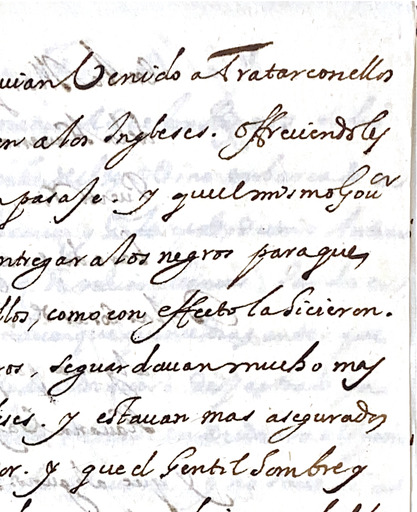 uian Venido a Tratar con ellos
en a los Ingleses. offreciendoles
pasaje y que el mismo Gouor
ntregar a los negros para que
llos, como con effecto la hicieron.
ros, se guardauan mucho mas
eses. y estauan mas asegurados
or. y que el Gentil hombre q